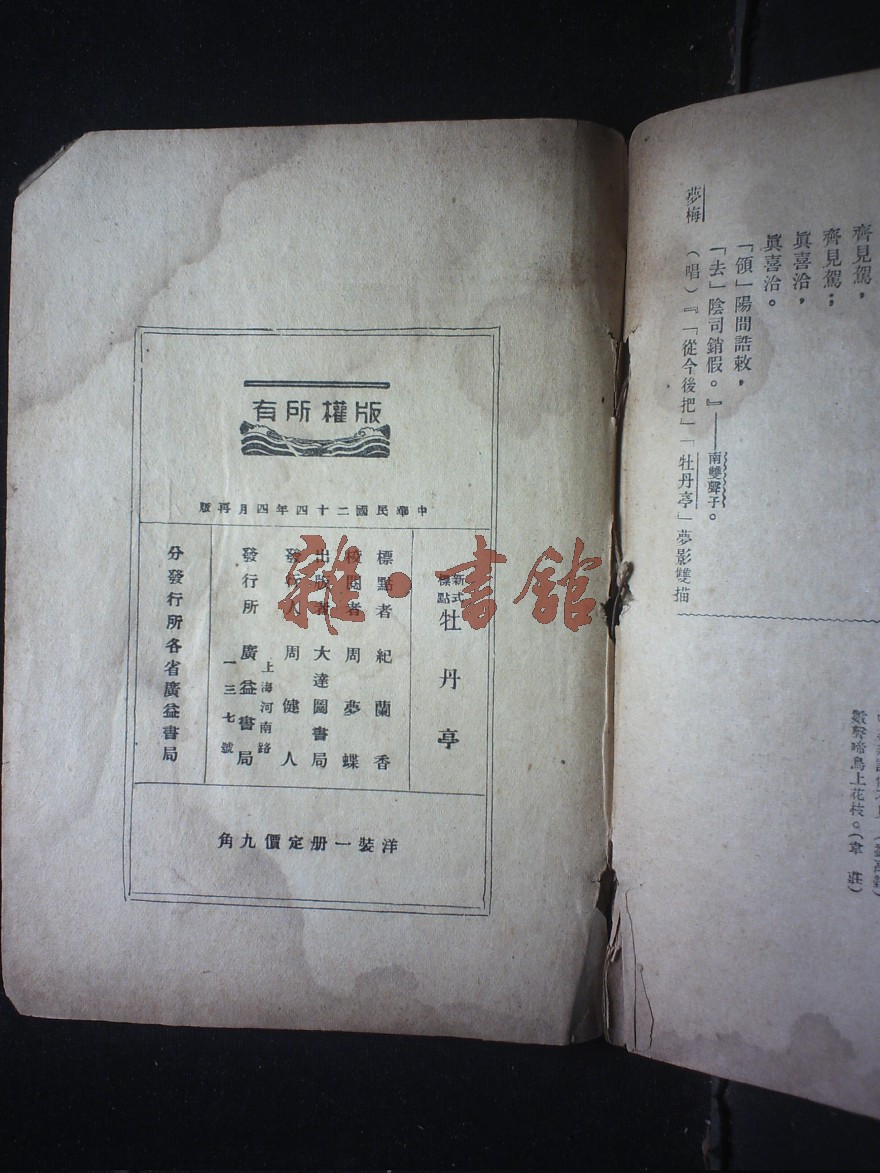 齊見駕，
齊見駕；
眞喜洽，
眞喜洽。
「領」陽間誥敕，
「去」陰司銷假。』——南雙聲子。
夢梅
（唱）『「從今後把」「牡丹亭」夢影雙描
數聲啼鳥上花枝。（韋 莊）
版權所有
中華民國二十四年四月再版
新式標點 牡丹亭
標點者 紀蘭香
校閱者 周夢蝶
出版者 大達圖書局
發行人 周健人
上海河南路
發行所 廣益書局
一三七號
分發行所各省廣益書局
洋裝一册定價九角
雜·書館